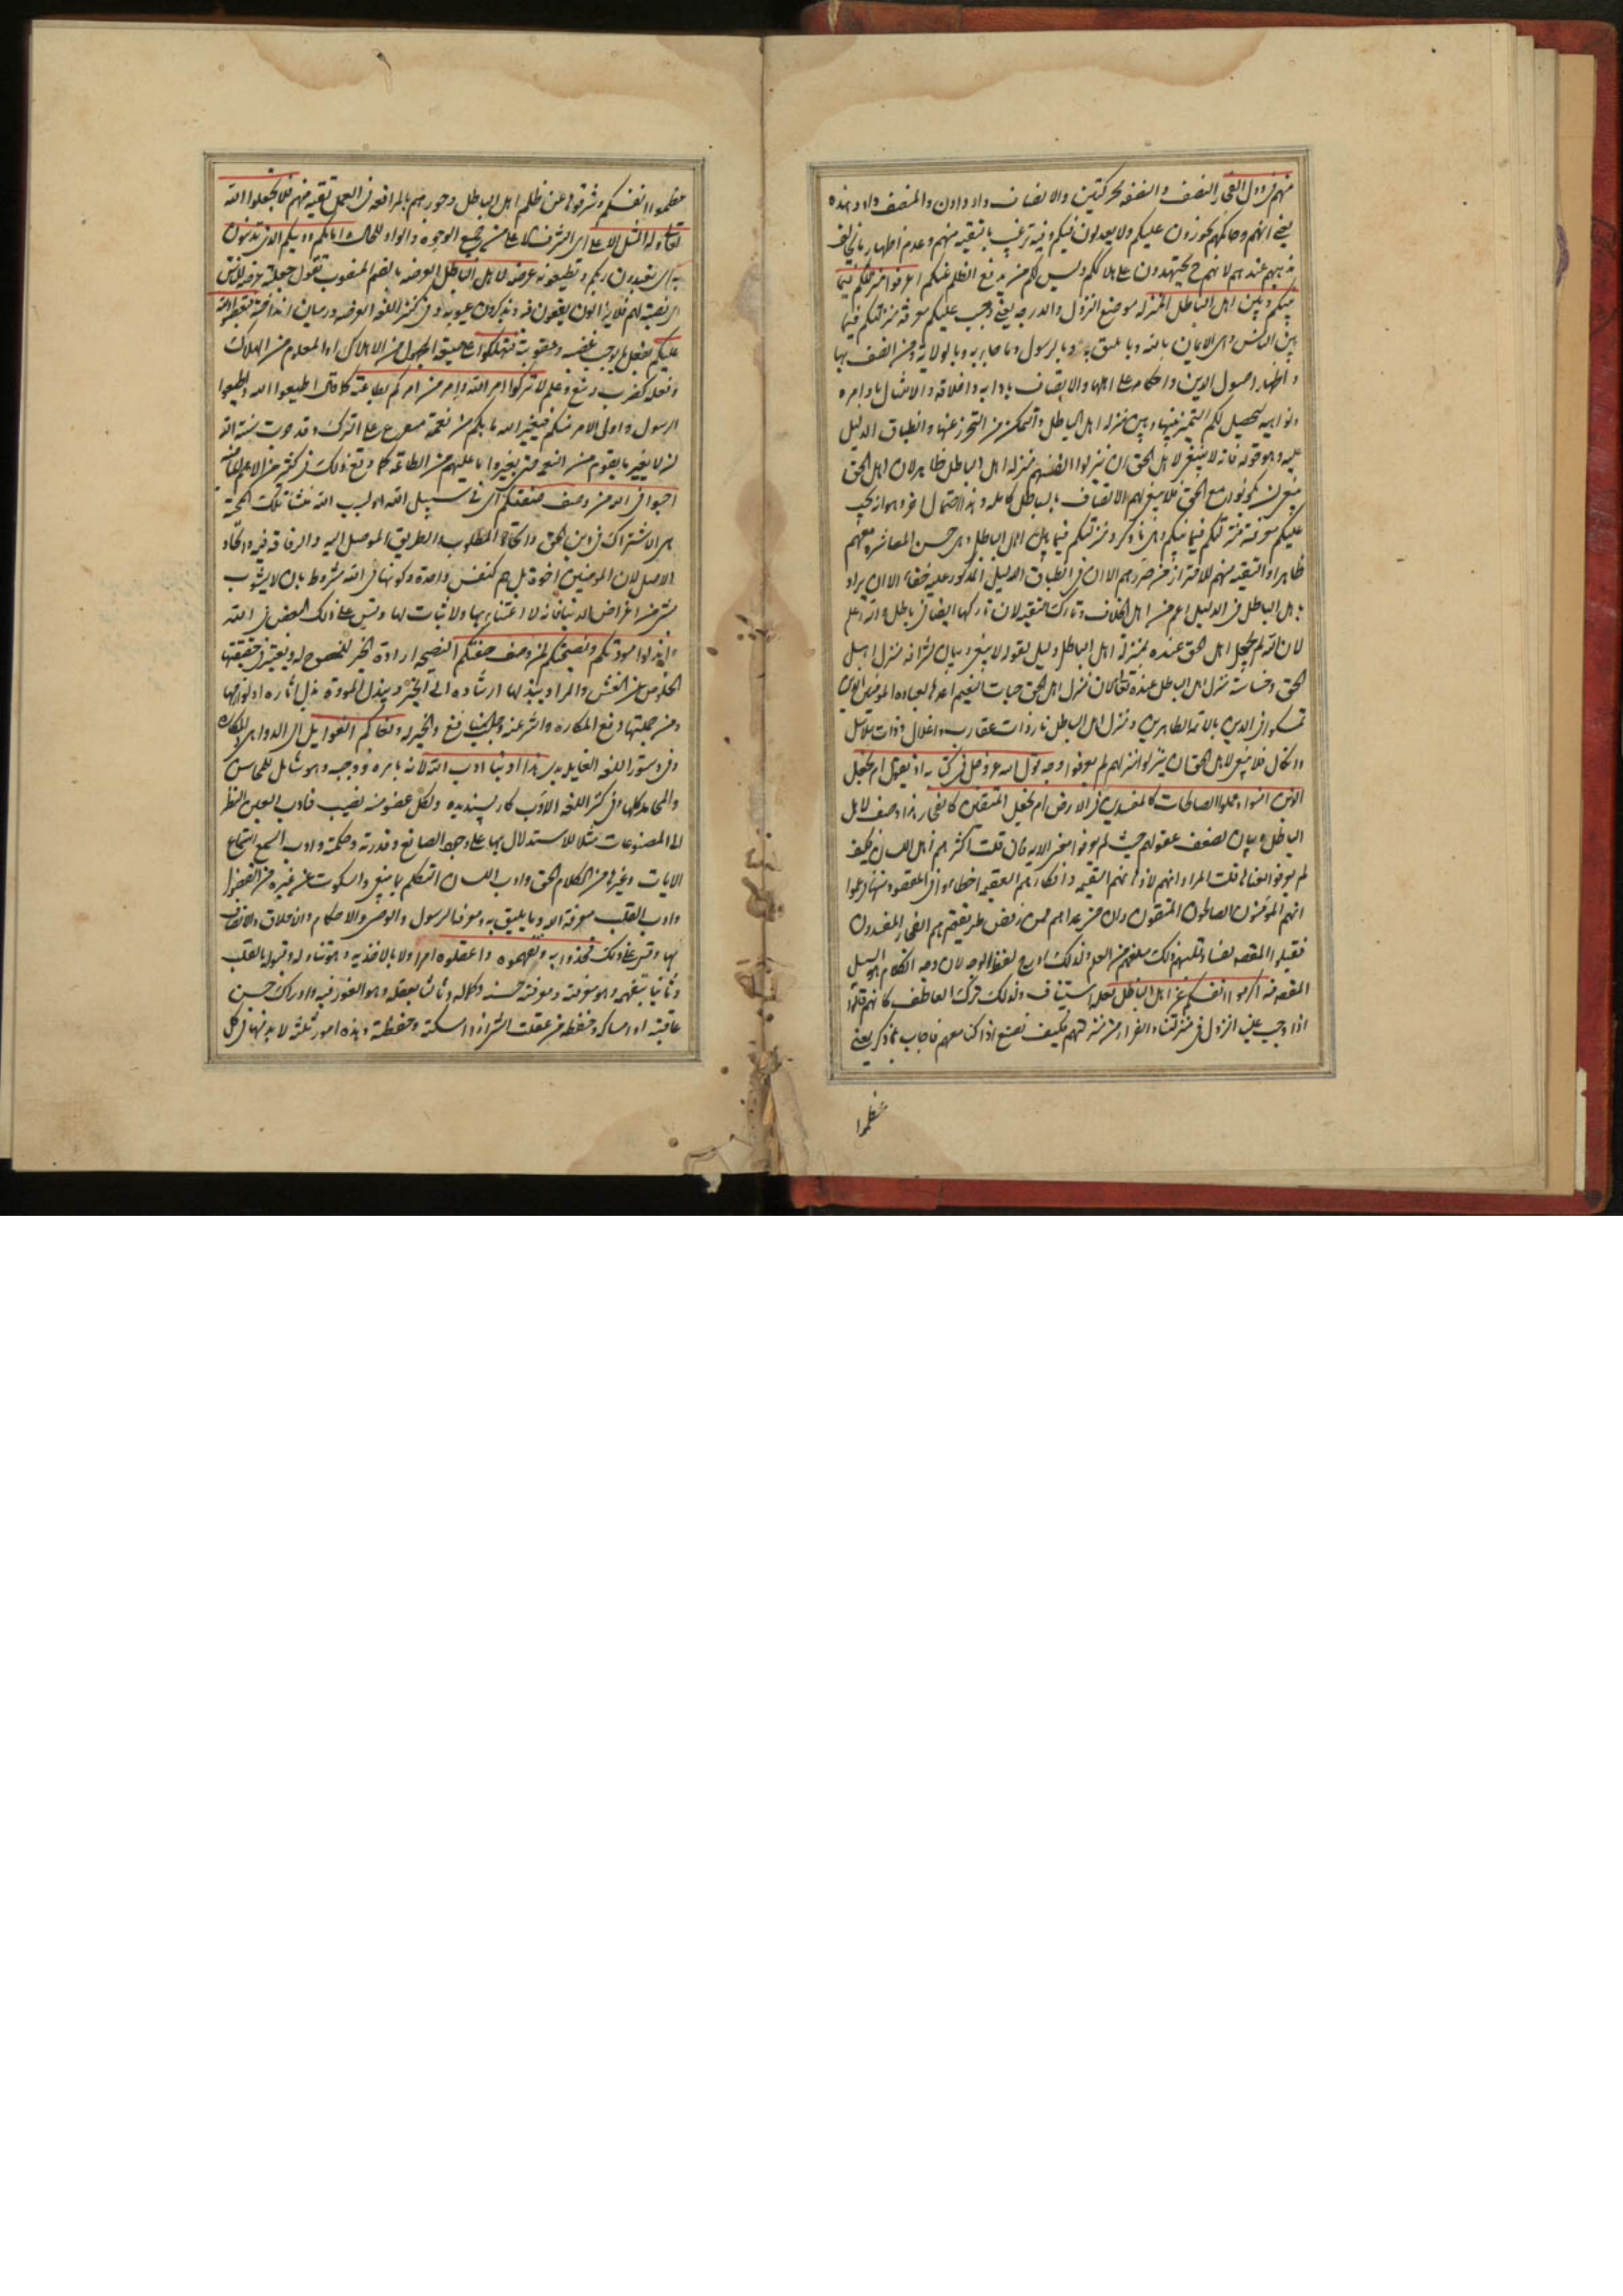 منهم في دول الفجار النصف والنصفة محركتين والانصاف داد دادن والمنتصف داد دهنده
يعني انهم وحاكمهم يجوزون عليكم ولا يعدلون فيكم وفيه ترغيب بالتقية منهم وعدم اظهار ما يخالف
مذهبهم عندهم لانهم ح يجتهدون على هلاككم وليس لكم من يدفع الظلم عنكم اعرفوا منزلتكم فيما
بينكم وبين اهل الباطل المنزلة موضع النزول والدرجة يعني وجب عليكم معرفة منزلتكم فيما
بين الناس وهي الايمان بالله وما يليق به وبالرسول وما جاء به وبالولاية ومن اتصف بها
واظهار اصول الدين واحكامه على اهلها والاتصاف بادابه واخلاقه والامتثال باوامره
ونواهيه ليحصل لكم التميز بينها وبين منزلة اهل الباطل والتمكن من التحرز عنها وانطباق الدليل
عليه وهو قوله فانه لا ينبغي لاهل الحق ان ينزلوا انفسهم منزلة اهل الباطل ظاهر لان اهل الحق
ينبغي ان يكونوا مع الحق فلا ينبغي لهم الاتصاف بالباطل كاملة وهذا احتمال اخر وهو انه يجب
عليكم معرفة منزلتكم فيما بينكم وهي ما ذكر ومنزلتكم فيما بين اهل الباطل وهي حسن المعاشرة معهم
ظاهرا والتقية منهم للاحتراز من ضررهم الا ان في انطباق الدليل المذكور عليه خفاء الا ان يراد
باهل الباطل في الدليل اعم من اهل الخلاف وتارك التقية لان تاركها ايضا في باطل والله اعلم
لان الله لم يجعل اهل الحق عنده بمنزلة اهل الباطل دليل لقوله لا ينبغي وبيان لشرافة منزل اهل
الحق وخساسة منزل اهل الباطل عنده تعالى لان منزل اهل الحق جنات النعيم اعدها لعباده المؤمنين الذين
تمسكوا في الدين بالائمة الطاهرين ومنزل اهل الباطل نار ذات عقارب واغلال وذات سلاسل
وانكال فلا ينبغي لاهل الحق ان ينزلوا منزلهم لم يعرفوا وجه قول الله عز وجل في كتابه اذ يقول ام نجعل
الذين امنوا وعملوا الصالحات كالمفسدين في الارض ام نجعل المتقين كالفجار هذا وصف لاهل
الباطل وبيان لضعف عقولهم حيث لم يعرفوا مغزى الاية فان قلت اكثرهم اهل اللسان فكيف
لم يعرفوا معناها قلت المراد انهم
انهم المؤمنون الصالحون المتقون وان من عداهم ممن رفض طريقتهم هم الفجار المفسدون
المقصد منه اكرموا انفسكم عن اهل الباطل لعله استيناف ولذلك ترك العاطف كانهم قالوا
اذا وجب علينا النزول في منزلتنا والفرار من منزلتهم فكيف نصنع اذا كنا معهم فاجاب بما ذكر يعني
عظموا
عظموا انفسكم وشرفوها عن ظلم اهل الباطل وجورهم بالمرافقة في العمل تقية منهم فلا تجعلوا الله
تعالى وله المثل الاعلى اي الشرف الاعلى من جميع الوجوه والواو للحال وامامكم ودينكم الذي تدينون
به اي تعبدون ربكم وتطيعونه عرضة لاهل الباطل العرضة بالضم المنصوب تقول جعلته عرضة للناس
اي نصبته لهم فلا يزالون يقعون فيه ويذكرون عيوبه وفي كنز اللغة العرضة درميان انداخته فتغضبوا الله
عليكم بفعل ما يوجب غضبه وعقوبته فتهلكوا على صيغة المجهول من الاهلاك او المعلوم من الهلاك
وفعله كضرب ومنع وعلم لا تتركوا امر الله وامر من امركم بطاعته كما قال اطيعوا الله واطيعوا
الرسول واولي الامر منكم فيغير الله ما بكم من نعمة متفرع على الترك وقد جرت سنة الله
ان لا يغير ما بقوم من النعم حتى يغيروا ما عليهم من الطاعة كما وقع ذلك في كثير من الامم الماضية
احبوا في الله من وصف صفتكم اي في سبيل الله او لسبب الله منشأ تلك المحبة
هي الاشتراك في دين الحق واتحاد المطلوب والطريق الموصل اليه والرفاقة فيه واتحاد
الاصل لان المؤمنين اخوة بل هم كنفس واحدة وكونها في الله مشروط بان لا يشوب
بشيء من اغراض الدنيا فانه لا اعتبار بها ولا ثبات لها وقس على ذلك البغض في الله
وابذلوا مودتكم ونصيحتكم لمن وصف صفتكم النصيحة ارادة الخير للمنصوح له ويعتبر في حقيقتها
الخلوص عن الغش والمراد ببذلها ارشاده الى الخير وببذل المودة بذل اثاره او لوازمها
ومن جملتها دفع المكاره والشر عنه وجلب المنافع والخير له وبغاكم الغوايل اي الدواهي والمكاره
وفي دستور اللغة الغايلة بدي هذا ادبنا ادب الله لانه بامره ووجبه وهو شامل للمحاسن
والمحامد كلها وفي كنز اللغة الادب كار پسنديده ولكل عضو منه نصيب فادب العين النظر
الى المصنوعات مثلا للاستدلال بها على وجود الصانع وقدرته وحكمته وادب السمع استماع
الايات وغيرها من الكلام الحق وادب اللسان التكلم بما ينبغي والسكوت عن غيره من الفضول
وادب القلب معرفة الله وما يليق به ومعرفة الرسول والوصي والاحكام والاخلاق والاتصاف
بها وقس على ذلك فخذوا به وتفهموه واعقلوه امر اولا بالاخذ به وهو تناوله وقبوله بالقلب
وثانيا بتفهمه وهو معرفته ومعرفة حسنه وكماله وثالثا بعقله وهو الغور فيه وادراك حسن
عاقبته او امساكه وحفظه من عقلت الشيء اذا امسكته وحفظته وهذه امور ثلثة لا بد منها في كل